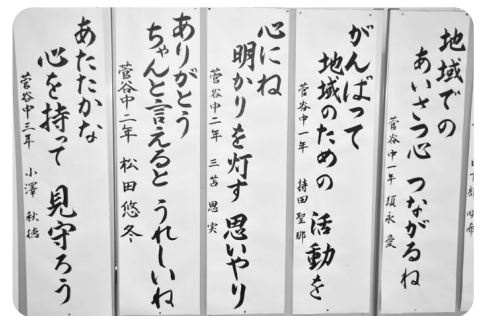 地域での
あいさつ心 つながるね
菅谷中一年 須永 愛
がんばって
地域のための 活動を
菅谷中一年 持田 聖那
心にね
明かりを灯す 思いやり
菅谷中二年 三苫 恩実
ありがとう
ちゃんと言えると うれしいね
菅谷中二年 松田 悠冬
あたたかな
心を持って 見守ろう
菅谷中三年 小澤 秋徳